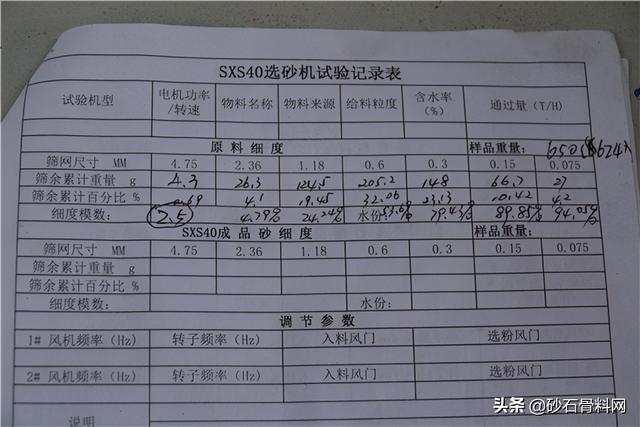 SXS40选砂机试验记录表
试验机型 电机功率/转速 物料名称 物料来源 给料粒度 含水率(%) 通过量(T/H)
原料细度 样品重量:
筛网尺寸 MM 4.75 2.36 1.18 0.6 0.3 0.15 0.075
筛余累计重量 g 4.3 26.3 124.5 205.2 148 66.7 27
筛余累计百分比 % 0.69 4.1 19.45 32.06 23.13 10.42 4.2
细度模数: 2.5 4.79% 24.24% 水份: 79.43% 89.85% 94.05%
SXS40成品砂细度 样品重量:
筛网尺寸 MM 4.75 2.36 1.18 0.6 0.3 0.15 0.075
筛余累计重量 g
筛余累计百分比 %
细度模数: 水份:
调节参数
1# 风机频率(Hz) 转子频率(Hz) 入料风门 选粉风门
2# 风机频率(Hz) 转子频率(Hz) 入料风门 选粉风门
说明
头条 @砂石骨料网